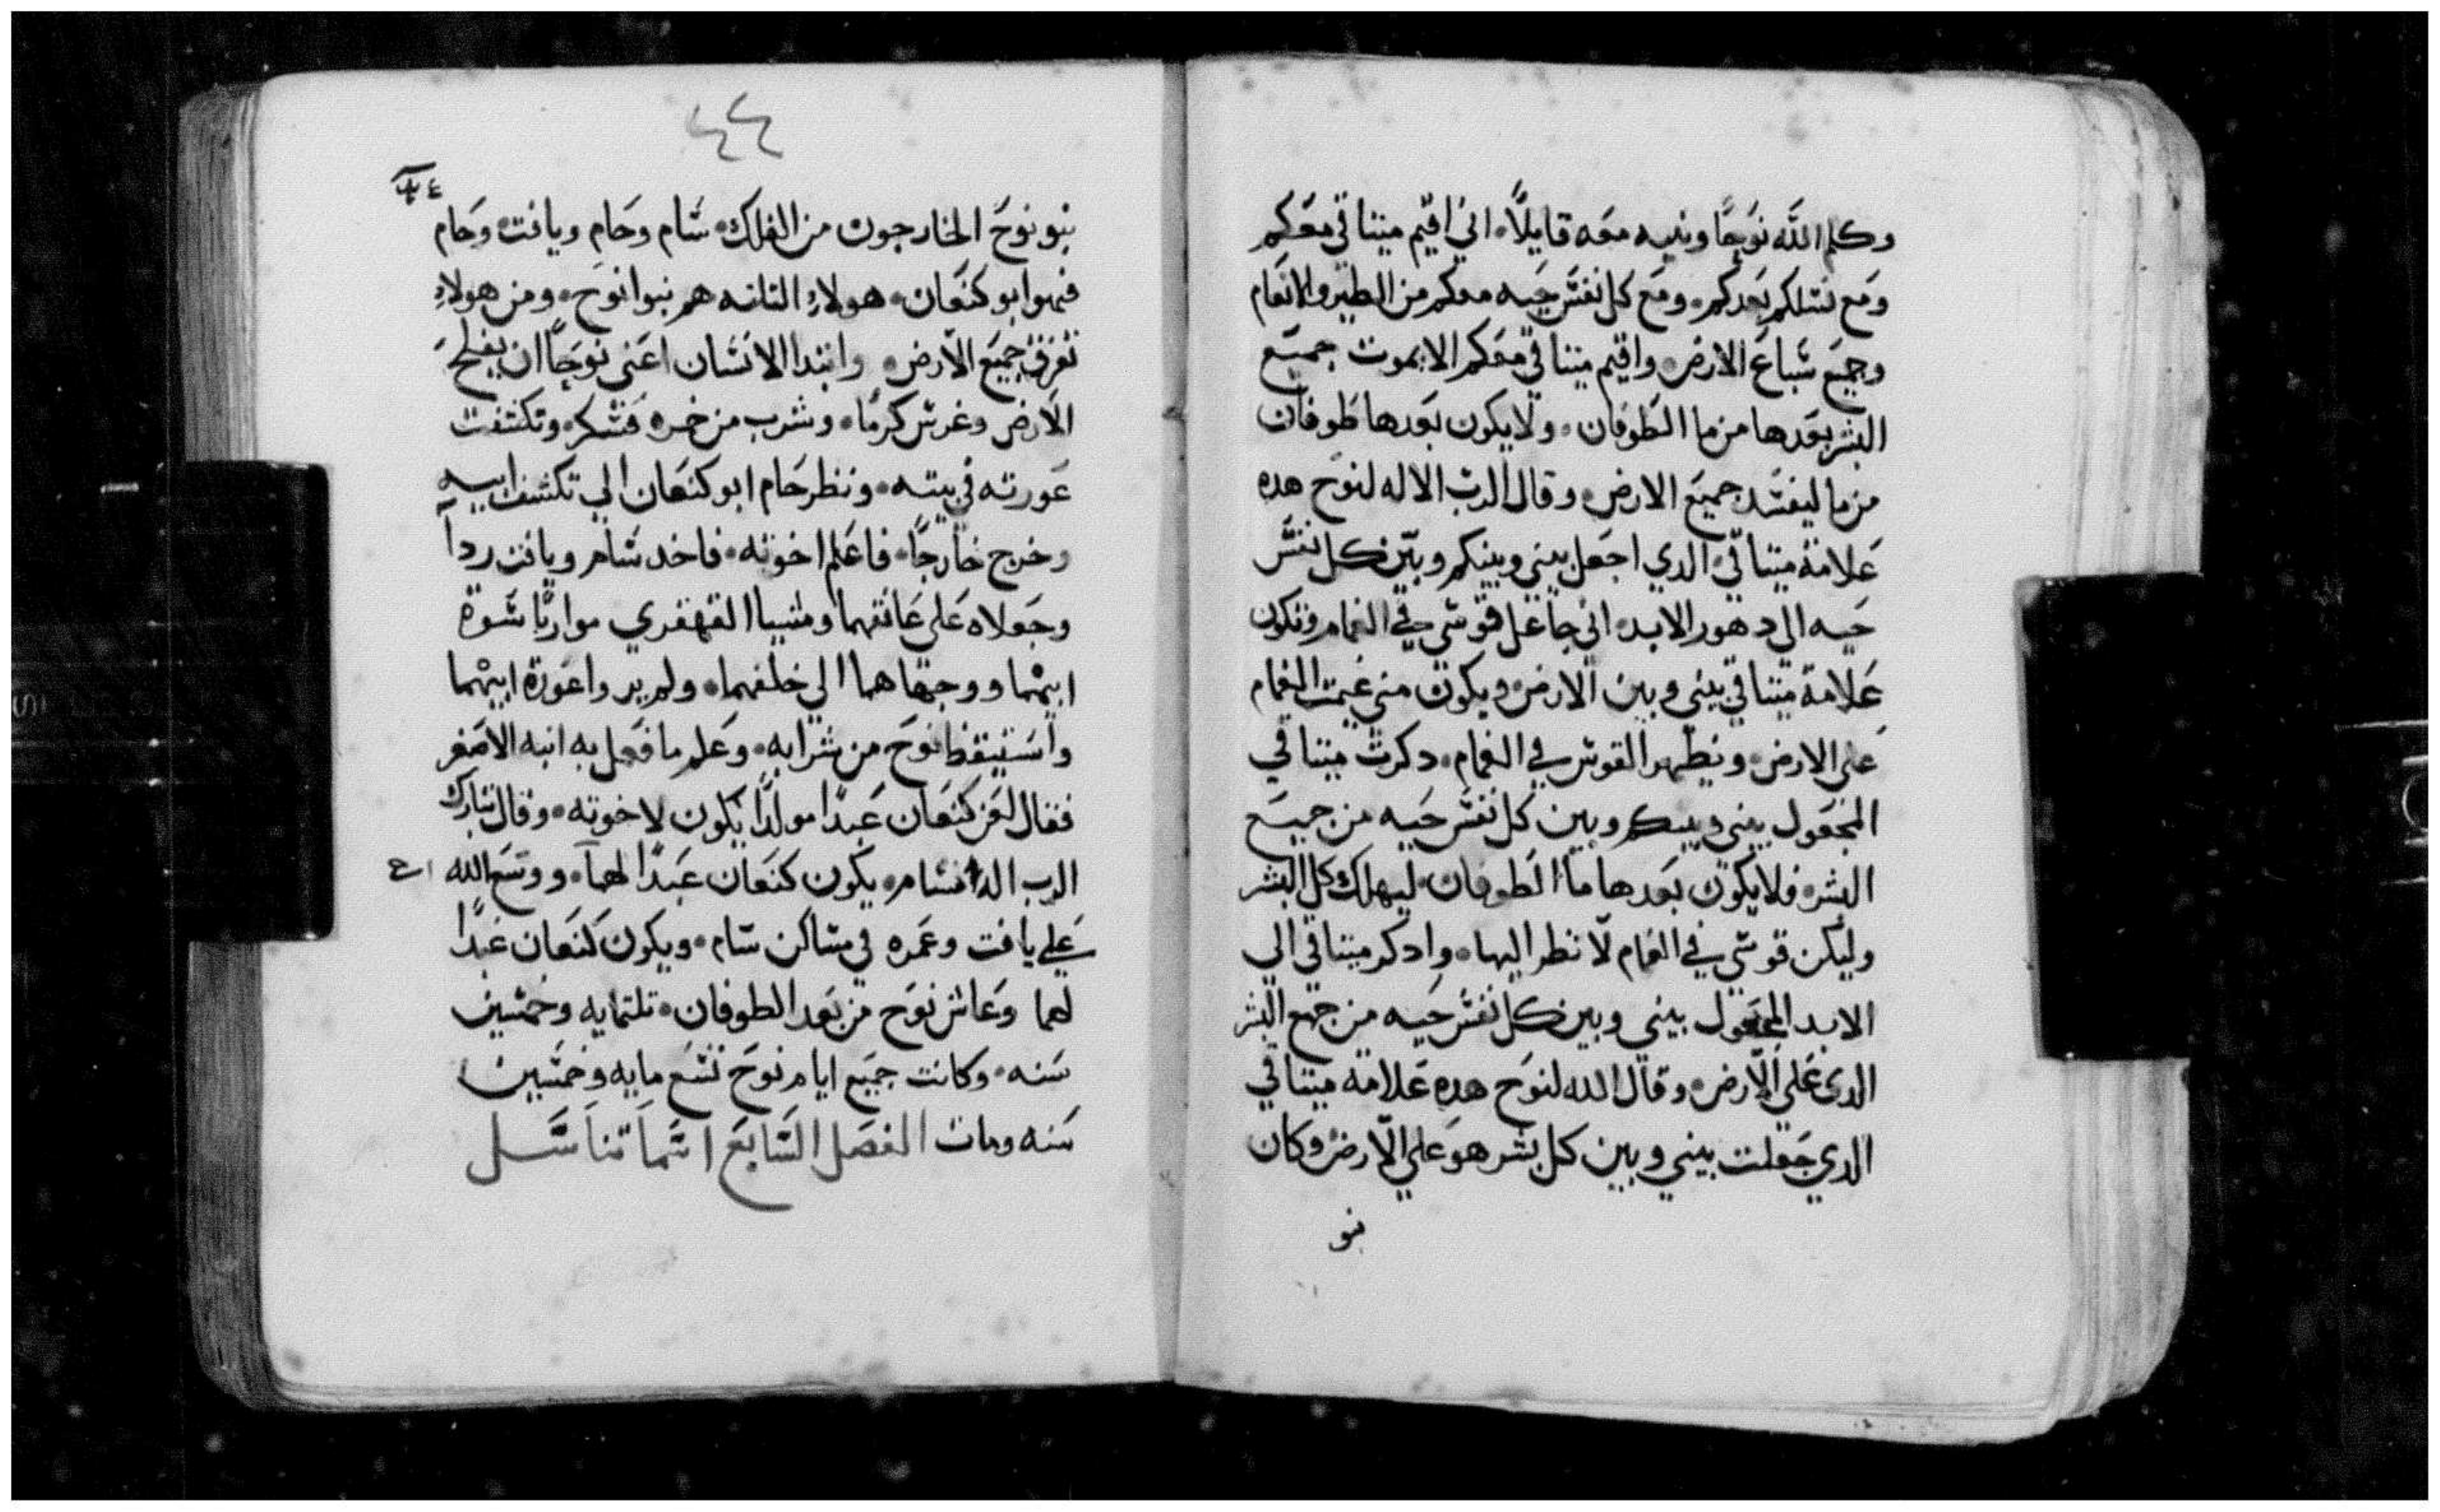 وكلم الله نوحًا وبنيه معه قايلًا اني اقيم ميتاقي معكم
ومع نسلكم بعدكم ومع كل نفس حيه معكم من الطير والانعام
وجميع سباع الارض واقيم ميتاقي معكم الا يموت جميع
البشر بعدها من ما الطوفان ولا يكون بعدها طوفان
من ما ليفسد جميع الارض وقال الرب الاله لنوح هده
علامة ميتاقي الدي اجعل بيني وبينكم وبين كل نفس
حيه الي دهور الابد اني جاعل قوسي في الغمام وتكون
علامة ميتاقي بيني وبين الارض ويكون متي غيمت الغمام
علي الارض ويظهر القوس في الغمام دكرت ميتاقي
المجعول بيني وبينكم وبين كل نفس حيه من جميع
البشر فلا يكون بعدها ما الطوفان ليهلك كل البشر
وليكن قوسي في الغمام لانظر اليها وادكر ميتاقي الي
الابد المجعول بيني وبين كل نفس حيه من جميع البشر
الدي علي الارض وقال الله لنوح هده علامة ميتاقي
الدي جعلت بيني وبين كل بشر هو علي الارض وكان
بنو
٤٤
بنو نوح الخارجون من الفلك سام وحام ويافت وحام
فهوا ابو كنعان هولاء التلته هم بنوا نوح ومن هولاء
تفرق جميع الارض وابتدا الانسان اعني نوحًا ان يفلح
الارض وغرس كرمًا وشرب من خمره فسكر وتكشفت
عورته في بيته ونظر حام ابو كنعان الي تكشف ابيه
وخرج خارجًا فاعلم اخوته فاخد سام ويافت ردآ
وجعلاه علي عاتقهما ومشيا القهقري مواريًا سوة
ابيهما ووجهاهما الي خلفهما ولم يروا عورة ابيهما
واستيقظ نوح من شرابه وعلم ما فعل به ابنه الاصغر
فقال لعن كنعان عبدًا مولدًا يكون لاخوته وقال تبارك
الرب اله سام يكون كنعان عبدًا لهما ووسع الله
علي يافت وعمره في مساكن سام ويكون كنعان عبدًا
لهما وعاش نوح من بعد الطوفان تلتمايه وخمسين
سنه وكانت جميع ايام نوح تسع مايه وخمسين
سنه ومات الفصل السابع اسما تناسل